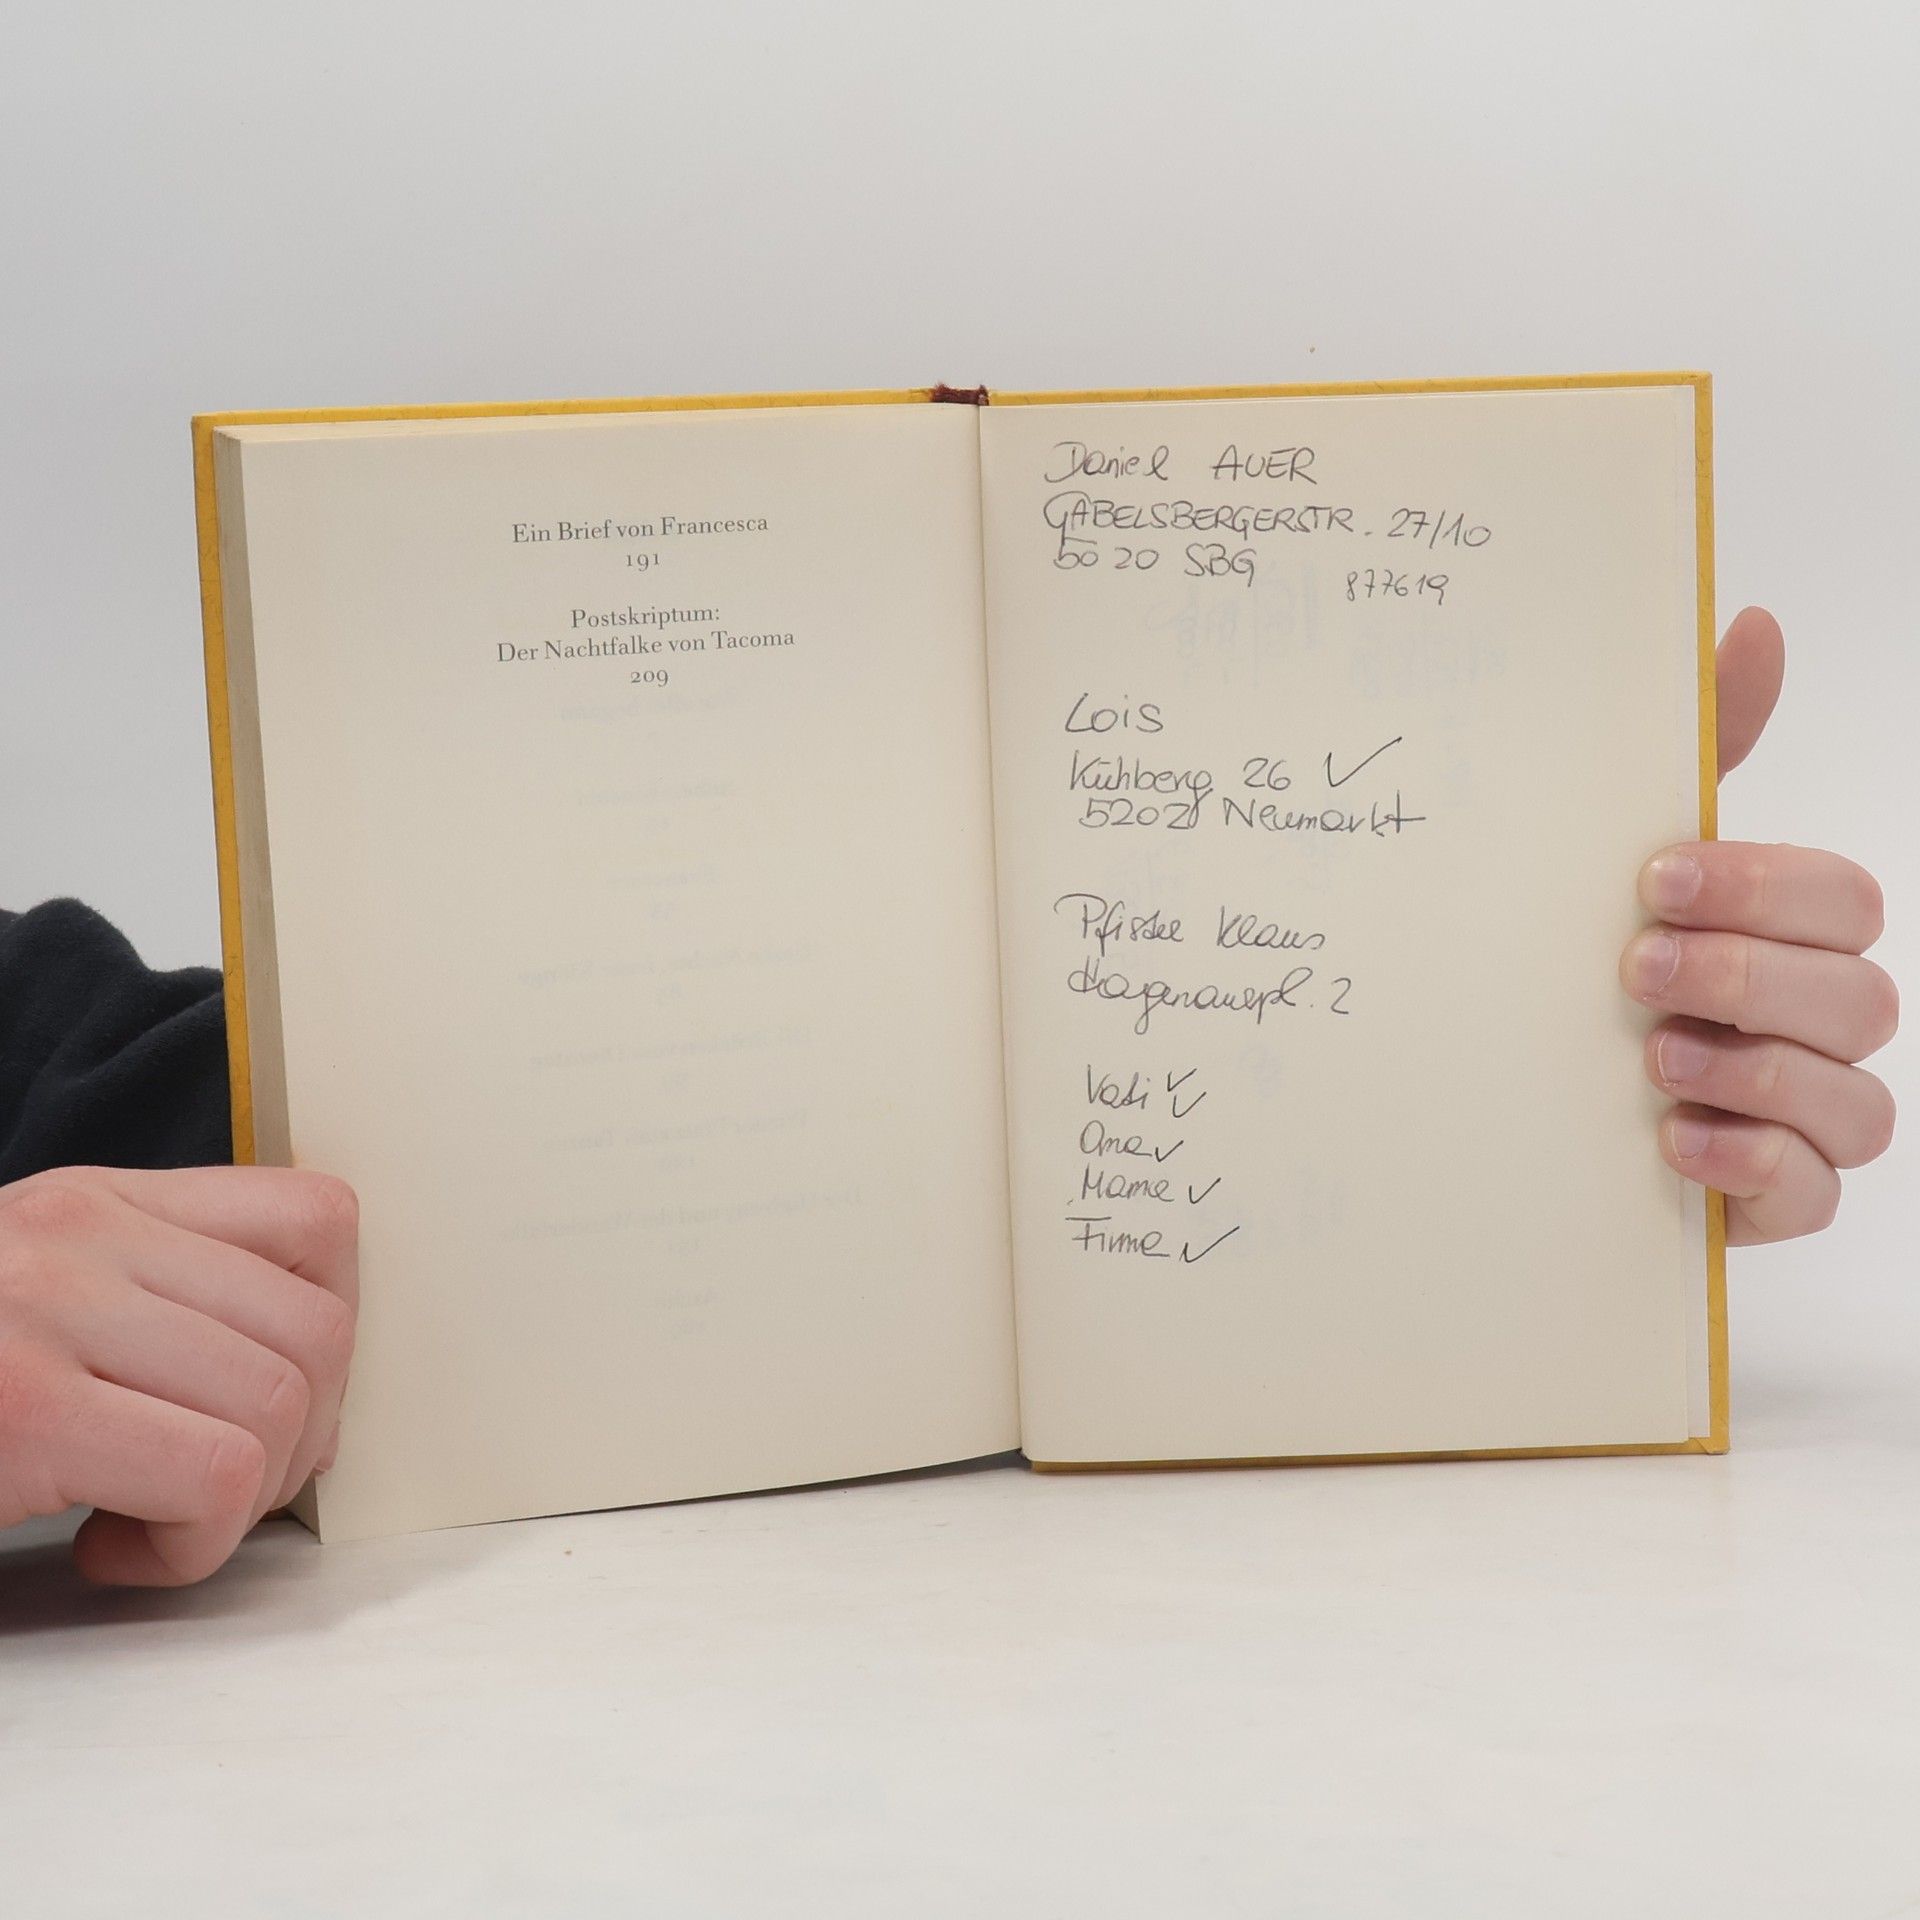 Ein Brief von Francesca
191
Postskriptum:
Der Nachtfalke von Tacoma
209
Daniel AUER
GABELSBERGERSTR. 27/10
5020 SBG
877619
Lois
Kühberg 26 ✓
5202 Neumarkt
Klaus
2
Vati ✓✓
Oma ✓
Mama ✓
Firma ✓